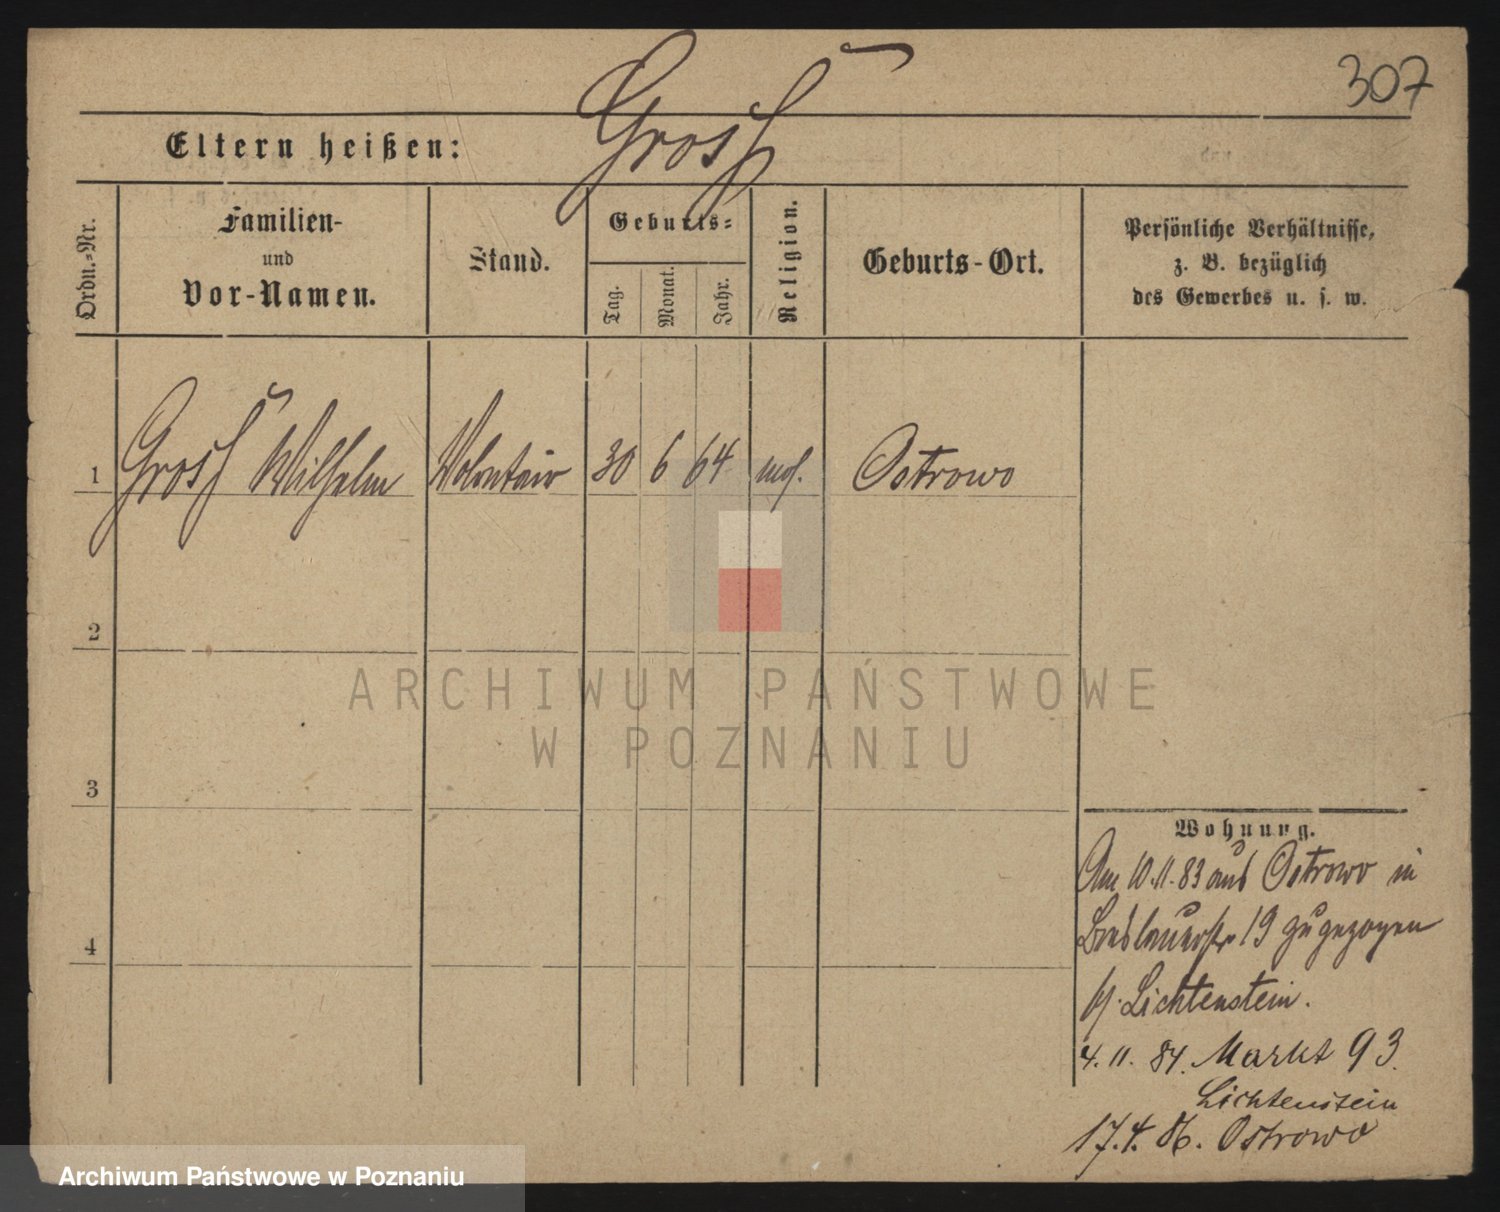 307
Grosz
Eltern heißen:
Ordn.=Nr.
Familien-
und
Vor-Namen.
Stand.
Geburts=
Tag.
Monat.
Jahr.
Religion.
Geburts-Ort.
Persönliche Verhältnisse,
z. B. bezüglich
des Gewerbes u. s. w.
1 Grosz Wilhelm Volontair 30 6 64 mos. Ostrowo
2
3
4
Wohnung.
Am 10.11.83 aus Ostrowo in
Breslauerstr 19 zugezogen
b/. Lichtenstein.
4. 11. 84. Markt 93.
Lichtenstein
17.4.86. Ostrowo
ARCHIWUM PAŃSTWOWE
W POZNANIU
Archiwum Państwowe w Poznaniu